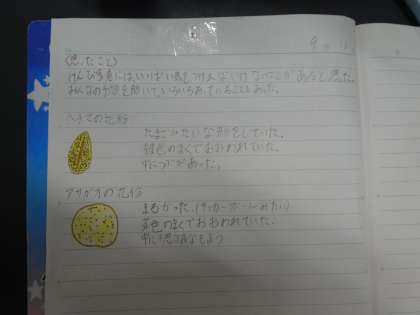 (思ったこと)
けんび鏡には、いっぱい気をつけなくてはいけないことがあると思った。
みんなの予想を聞いていろいろあっていることもあった。
ヘチマの花粉
たまごみたいな形をしていた。
黄色のまくでおおわれていた。
があった。
アサガオの花粉
まるかった。(サッカーボールみたい)
黄色のまくでおおわれていた。
不思議なもよう